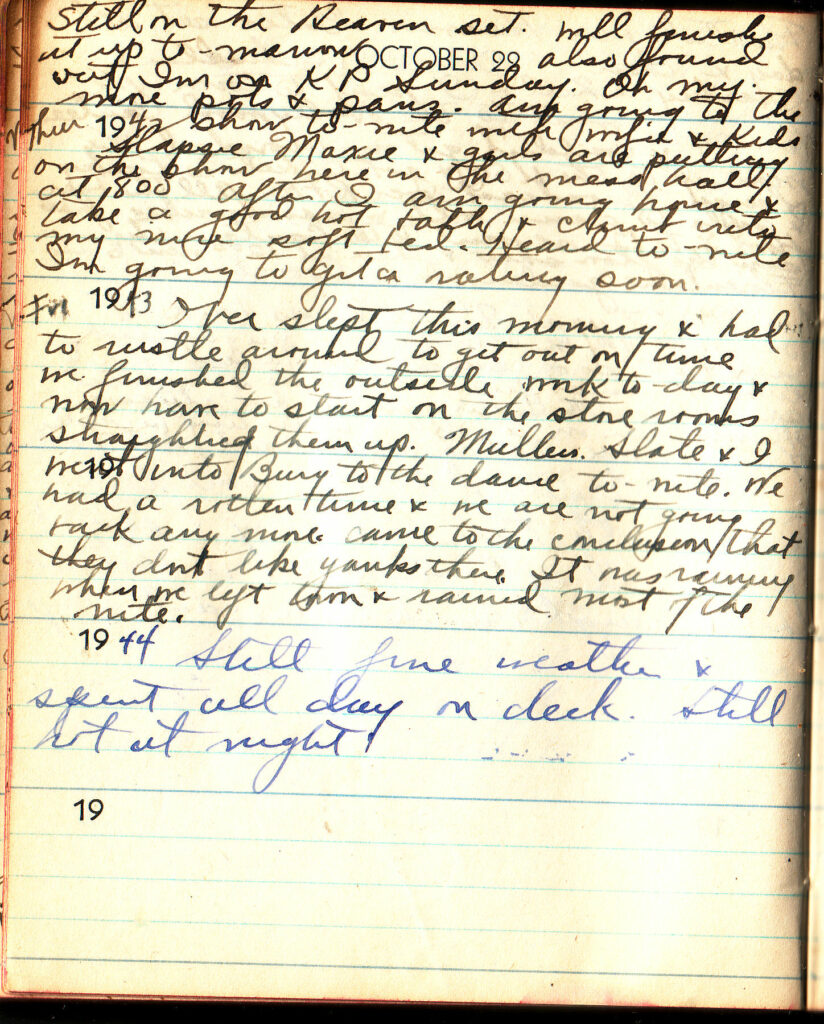 Still on the Beaver set. Will finish
it up to-morrow also found
OCTOBER 29
out I'm on K P Sunday. Oh my.
more pots & pans. am going to the
Thur 1942 show to-nite with wife & kids
Slapsie Maxie & girls are putting
on the show here in the mess hall.
at 800 After I am going home &
take a good hot bath & climb into
my nice soft bed. Heard to-nite
I'm going to get a rating soon.
Fri 1943 Over slept this morning & had
to rustle around to get out on time
we finished the outside work to-day &
now have to start on the store rooms
straighted them up. Mullen. Slate & I
19 went into Bury to the dance to-nite. We
had a rotten time & we are not going
back any more. came to the conclusion that
they dont like yanks there. It was raining
when we left town & rained most of the
nite.
1944 Still fine weather &
spent all day on deck. Still
hot at night.
19